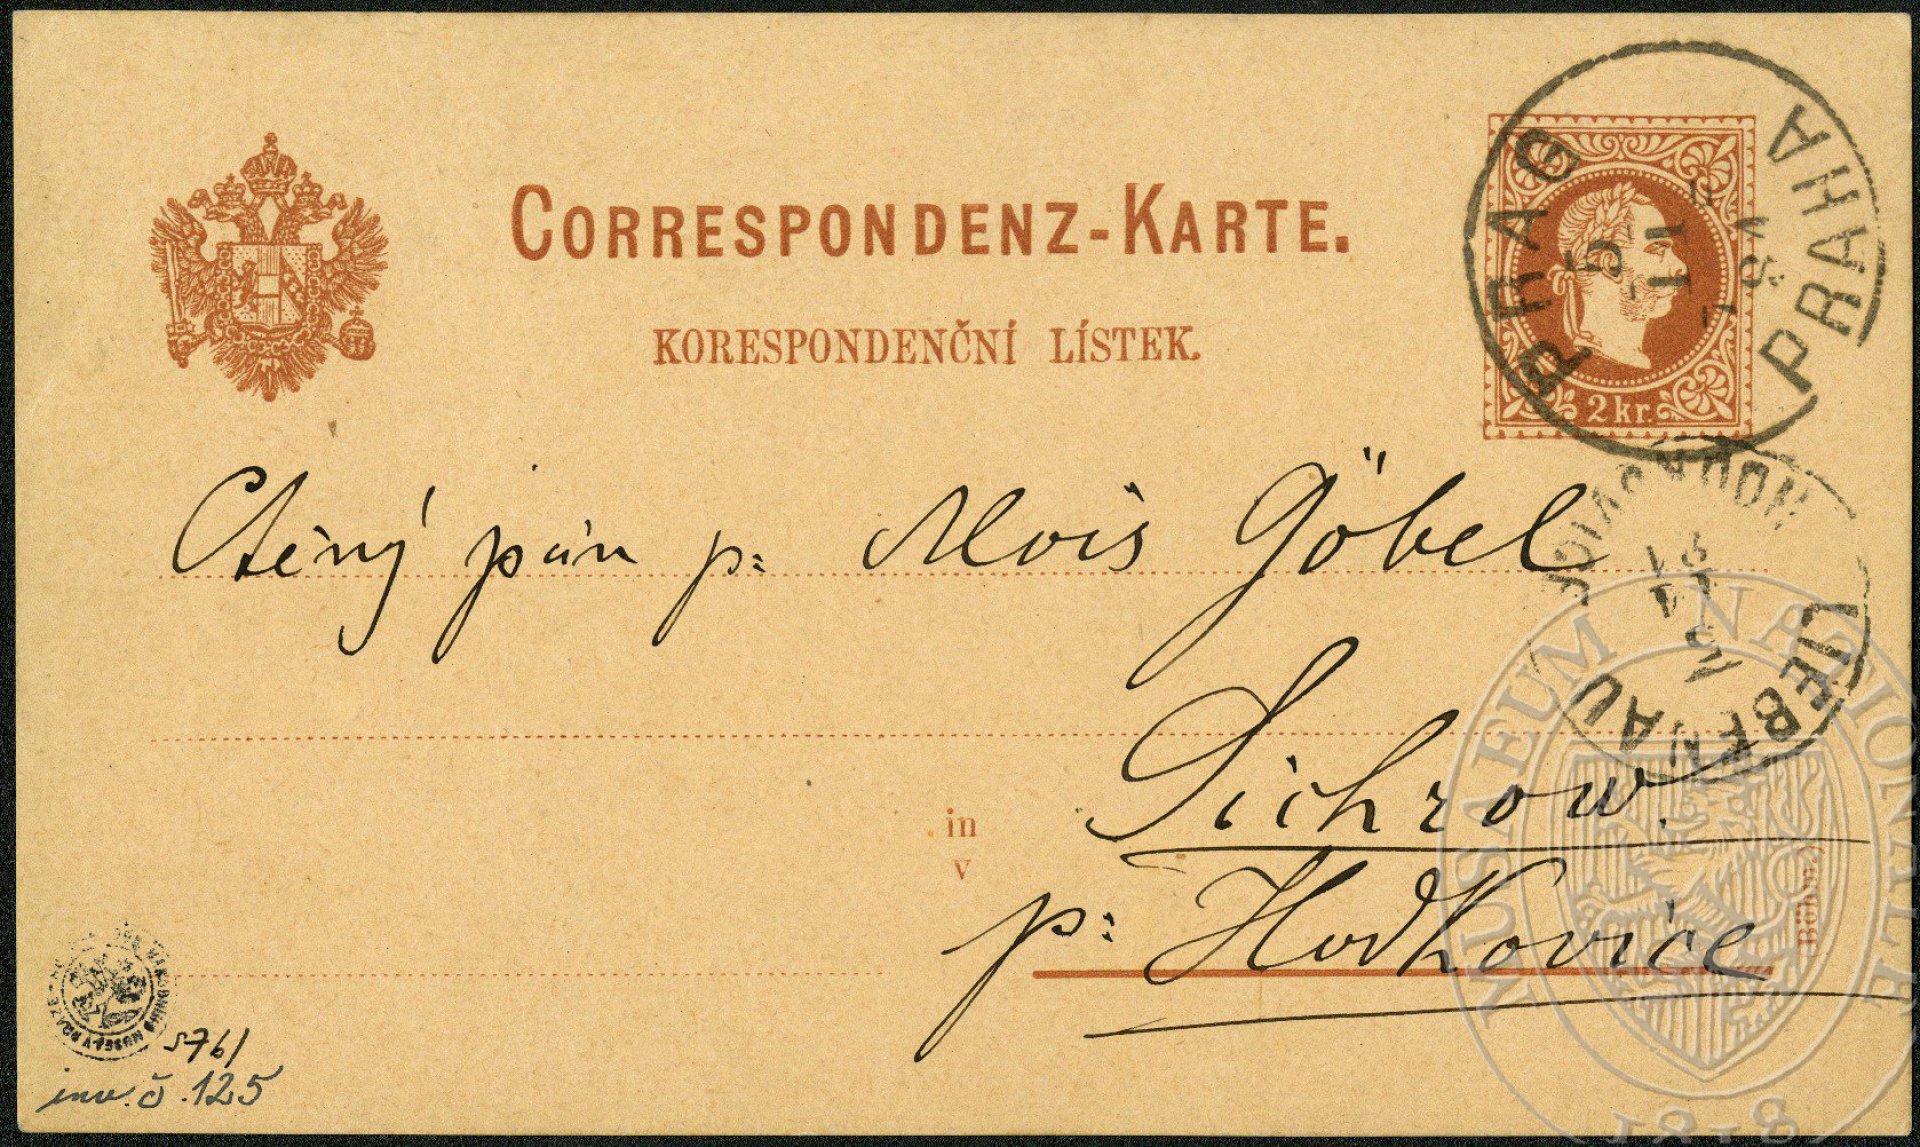 CORRESPONDENZ-KARTE.
KORESPONDENČNÍ LÍSTEK.
PRAG
PRAHA
2 kr.
Ctěný pán p: Alois Göbel
LIEBENAU
Sichrow.
in
v
p: Hodkovice
MUSAEUM NATIONALE
1818
5761
inv. č. 125